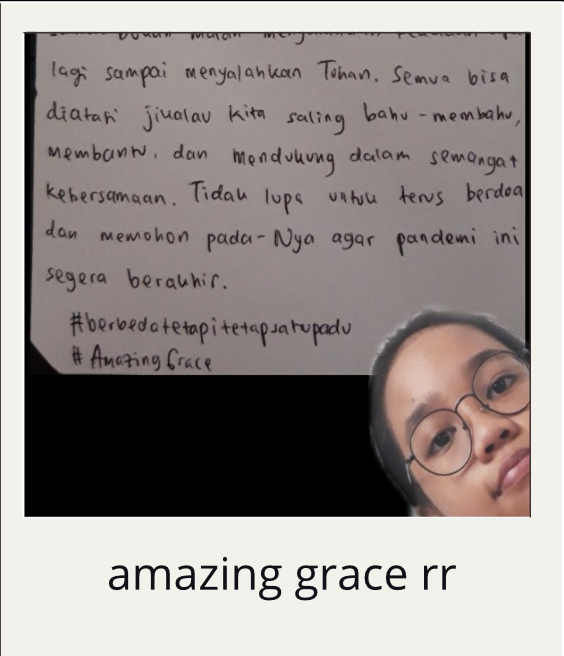 lagi sampai menyalahkan Tuhan. Semua bisa
diatasi jikalau kita saling bahu-membahu,
membantu, dan mendukung dalam semangat
kebersamaan. Tidak lupa untuk terus berdoa
dan memohon pada-Nya agar pandemi ini
segera berakhir.
#berbedatetapitetapsatupadu
#AmazingGrace
amazing grace rr